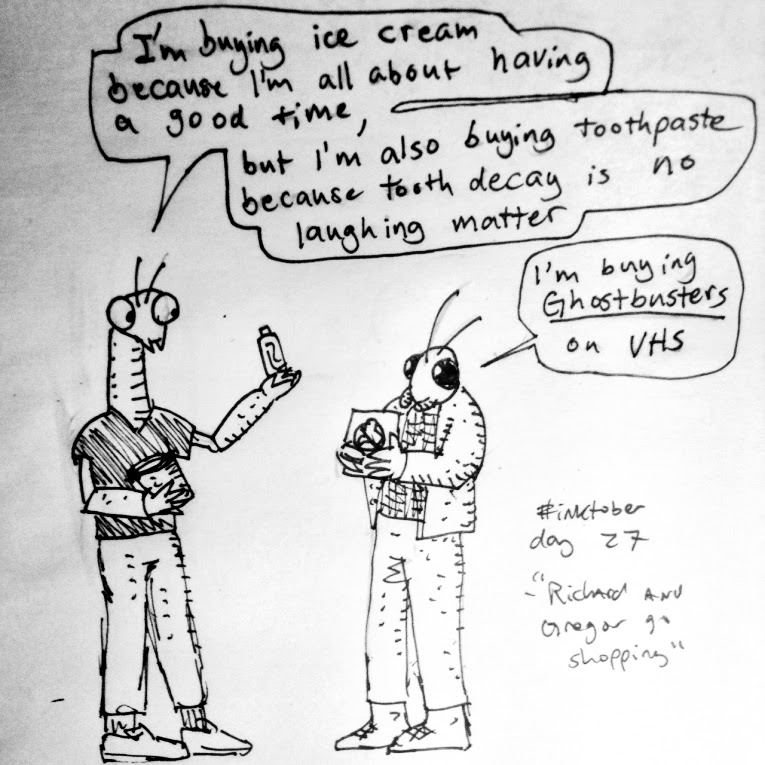 I'm buying ice cream
because I'm all about having
a good time,
but I'm also buying toothpaste
because tooth decay is no
laughing matter
I'm buying
Ghostbusters
on VHS
#inktober
day 27
-"Richard and
Gregor go
shopping"